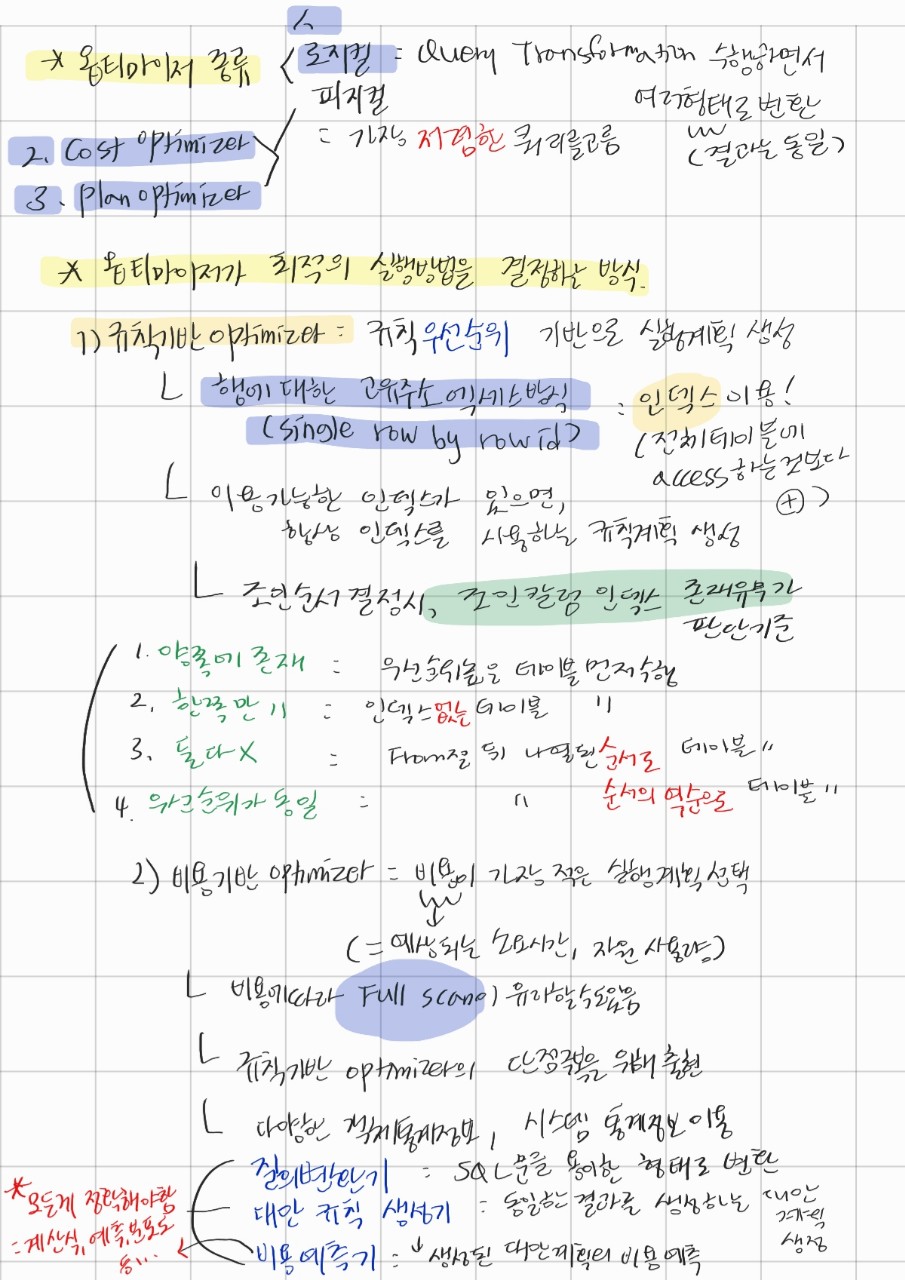 * 옵티마이저 종류
1.
로지컬 = Query Transformation 수행하면서
여러형태로 변환
(결과는 동일)
피지컬
= 가장 저렴한 쿼리를고름
2. Cost optimizer
3. plan optimizer
* 옵티마이저가 최적의 실행방법을 결정하는 방식.
1) 규칙기반 optimizer = 규칙우선순위 기반으로 실행계획 생성
└ 행에 대한 고유주소 엑세스방식 : 인덱스 이용!
(single row by row id) (전체테이블에
access하는것보다
⊕)
└ 이용가능한 인덱스가 있으면,
항상 인덱스를 사용하는 규칙계획 생성
└ 조인순서 결정시, 조인칼럼 인덱스 존재유무가
판단기준
1. 양쪽에 존재 = 우선순위높은 테이블 먼저수행
2. 한쪽만 〃 = 인덱스없는 테이블 〃
3. 둘다 X = From절 뒤 나열된 순서로 테이블 〃
4. 우선순위가 동일 = 〃 순서의 역순으로 테이블 〃
2) 비용기반 optimizer = 비용이 가장 적은 실행계획 선택
↓
(= 예상되는 소요시간, 자원 사용량)
└ 비용에따라 Full scan이 유리할수도있음
└ 규칙기반 optimizer의 단점극복을 위해 출현
└ 다양한 객체통계정보, 시스템 통계정보 이용
질의변환기 = SQL문을 용이한 형태로 변환
대안 규칙 생성기 = 동일하는 결과를 생성하는 대안
계획
생성
비용예측기 = 생성된 대안계획의 비용예측
* 모든게 정확해야함
= 계산식, 예측,분포도
등...